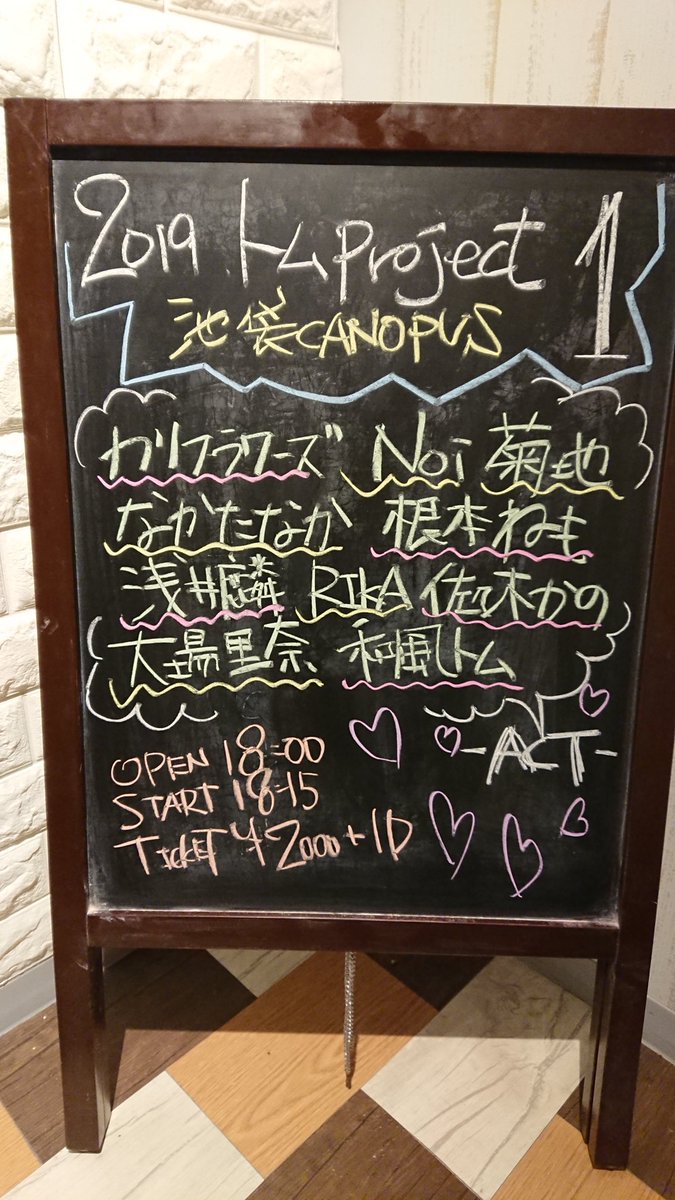 2019 トムproject 1
池袋CANOPUS
カリフラワーズ Noi 菊地
なかたなか 根本ねも
浅井麟 RIKA 佐々木かの
大場里奈 和風トム
-ACT-
OPEN 18:00
START 18:15
TICKET ¥2000+1D